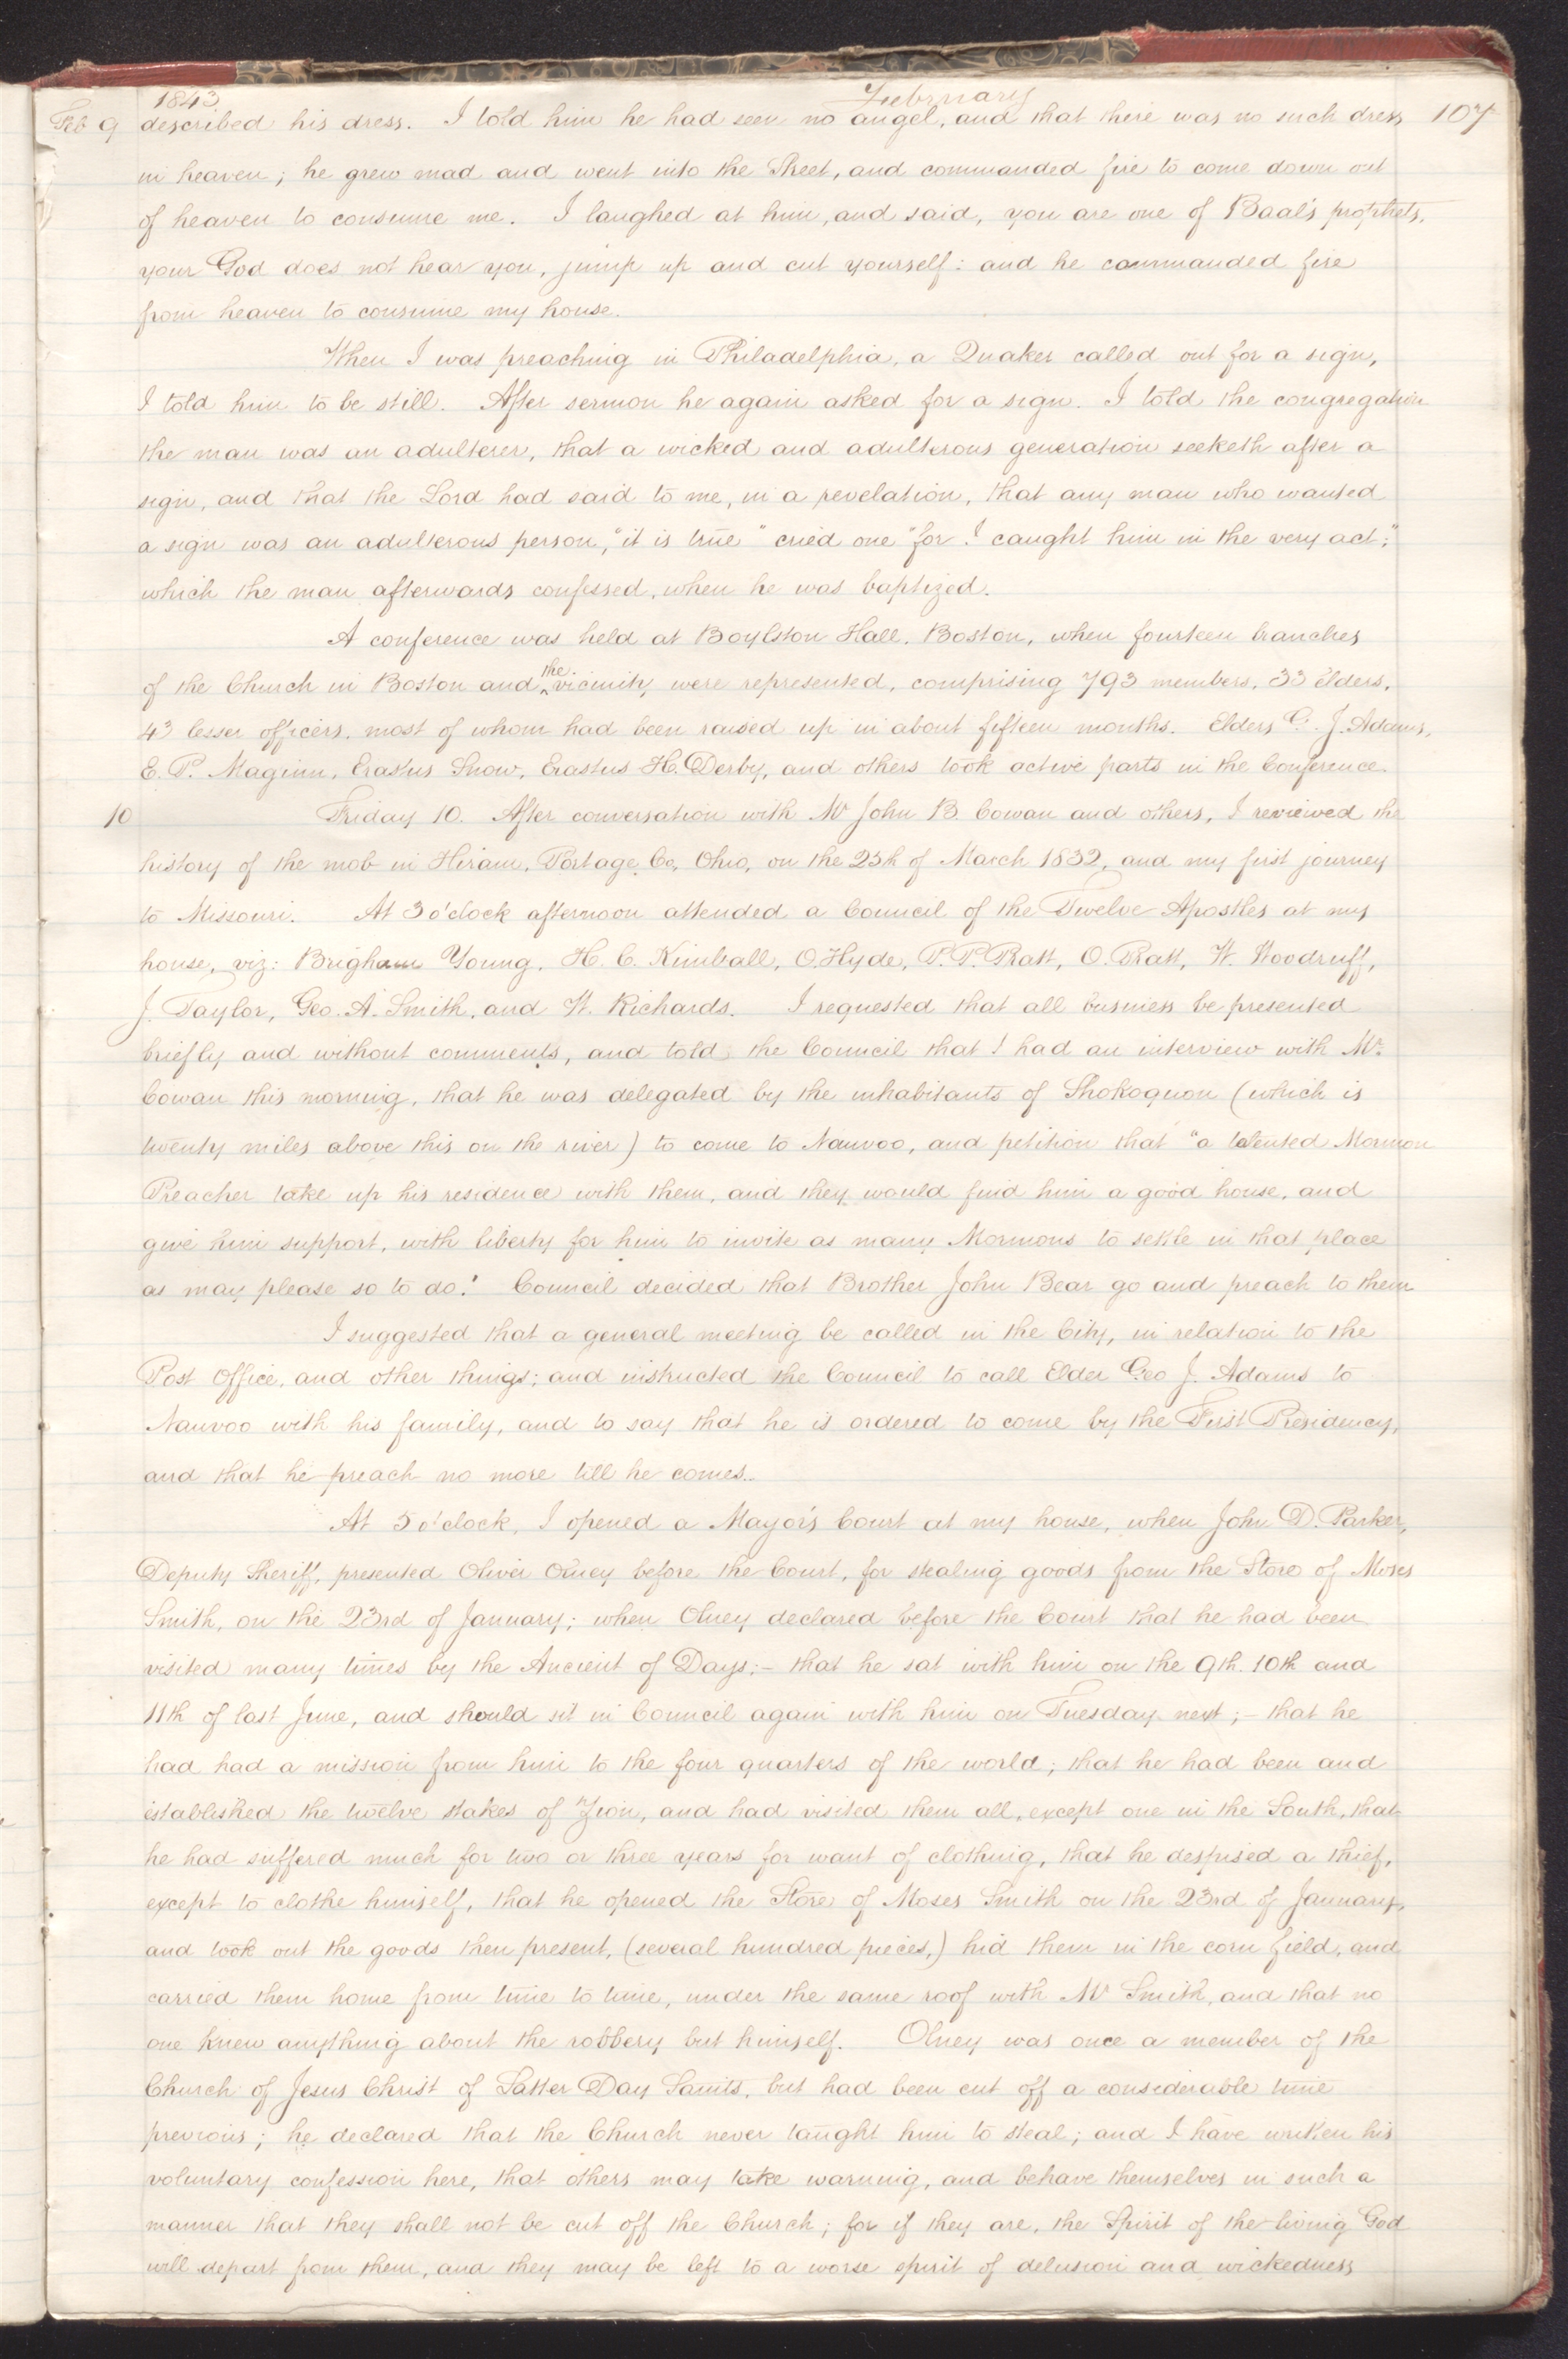 1843 February
Feb 9 described his dress. I told him he had seen no angel, and that there was no such dress 107
in heaven; he grew mad and went into the Street, and commanded fire to come down out
of heaven to consume me. I laughed at him, and said, you are one of Baal's prophets,
your God does not hear you, jump up and cut yourself: and he commanded fire
from heaven to consume my house.
When I was preaching in Philadelphia, a Quaker called out for a sign,
I told him to be still. After sermon he again asked for a sign. I told the congregation
the man was an adulterer, that a wicked and adulterous generation seeketh after a
sign, and that the Lord had said to me, in a revelation, that any man who wanted
a sign was an adulterous person, "it is true" cried one "for I caught him in the very act;"
which the man afterwards confessed, when he was baptized.
A conference was held at Boylston Hall, Boston, when fourteen branches
of the Church in Boston and ^the vicinity were represented, comprising 793 members, 33 elders,
43 lesser officers, most of whom had been raised up in about fifteen months. Elders G. J. Adams,
E. P. Maginn, Erastus Snow, Erastus H. Derby, and others took active parts in the Conference.
10 Friday 10. After conversation with Mr John B. Cowan and others, I reviewed the
history of the mob in Hiram, Portage Co, Ohio, on the 25th of March 1832, and my first journey
to Missouri. At 3 o'clock afternoon attended a Council of the Twelve Apostles at my
house, viz: Brigham Young, H. C. Kimball, O. Hyde, P. P. Pratt, O. Pratt, W. Woodruff,
J. Taylor, Geo. A. Smith, and W. Richards. I requested that all business be presented
briefly and without comments, and told the Council that I had an interview with Mr.
Cowan this morning, that he was delegated by the inhabitants of Shokoquon (which is
twenty miles above this on the river) to come to Nauvoo, and petition that "a talented Mormon
Preacher take up his residence with them, and they would find him a good house, and
give him support, with liberty for him to invite as many Mormons to settle in that place
as may please so to do." Council decided that Brother John Bear go and preach to them
I suggested that a general meeting be called in the City, in relation to the
Post Office, and other things; and instructed the Council to call Elder Geo J. Adams to
Nauvoo with his family, and to say that he is ordered to come by the First Presidency,
and that he preach no more till he comes.
At 5 o'clock, I opened a Mayor's Court at my house, when John D. Parker,
Deputy Sheriff, presented Oliver Olney before the Court, for stealing goods from the Store of Moses
Smith, on the 23rd of January; when Olney declared before the Court that he had been
visited many times by the Ancient of Days;- that he sat with him on the 9th. 10th and
11th of last June, and should sit in Council again with him on Tuesday next;- that he
had had a mission from him to the four quarters of the world; that he had been and
established the twelve stakes of Zion, and had visited them all, except one in the South, that
he had suffered much for two or three years for want of clothing, that he despised a thief,
except to clothe himself, that he opened the Store of Moses Smith on the 23rd of January,
and took out the goods then present, (several hundred pieces,) hid them in the corn field, and
carried them home from time to time, under the same roof with Mr Smith, and that no
one knew anything about the robbery but himself. Olney was once a member of the
Church of Jesus Christ of Latter Day Saints, but had been cut off a considerable time
previous; he declared that the Church never taught him to steal; and I have written his
voluntary confession here, that others may take warning, and behave themselves in such a
manner that they shall not be cut off the Church; for if they are, the Spirit of the living God
will depart from them, and they may be left to a worse spirit of delusion and wickedness